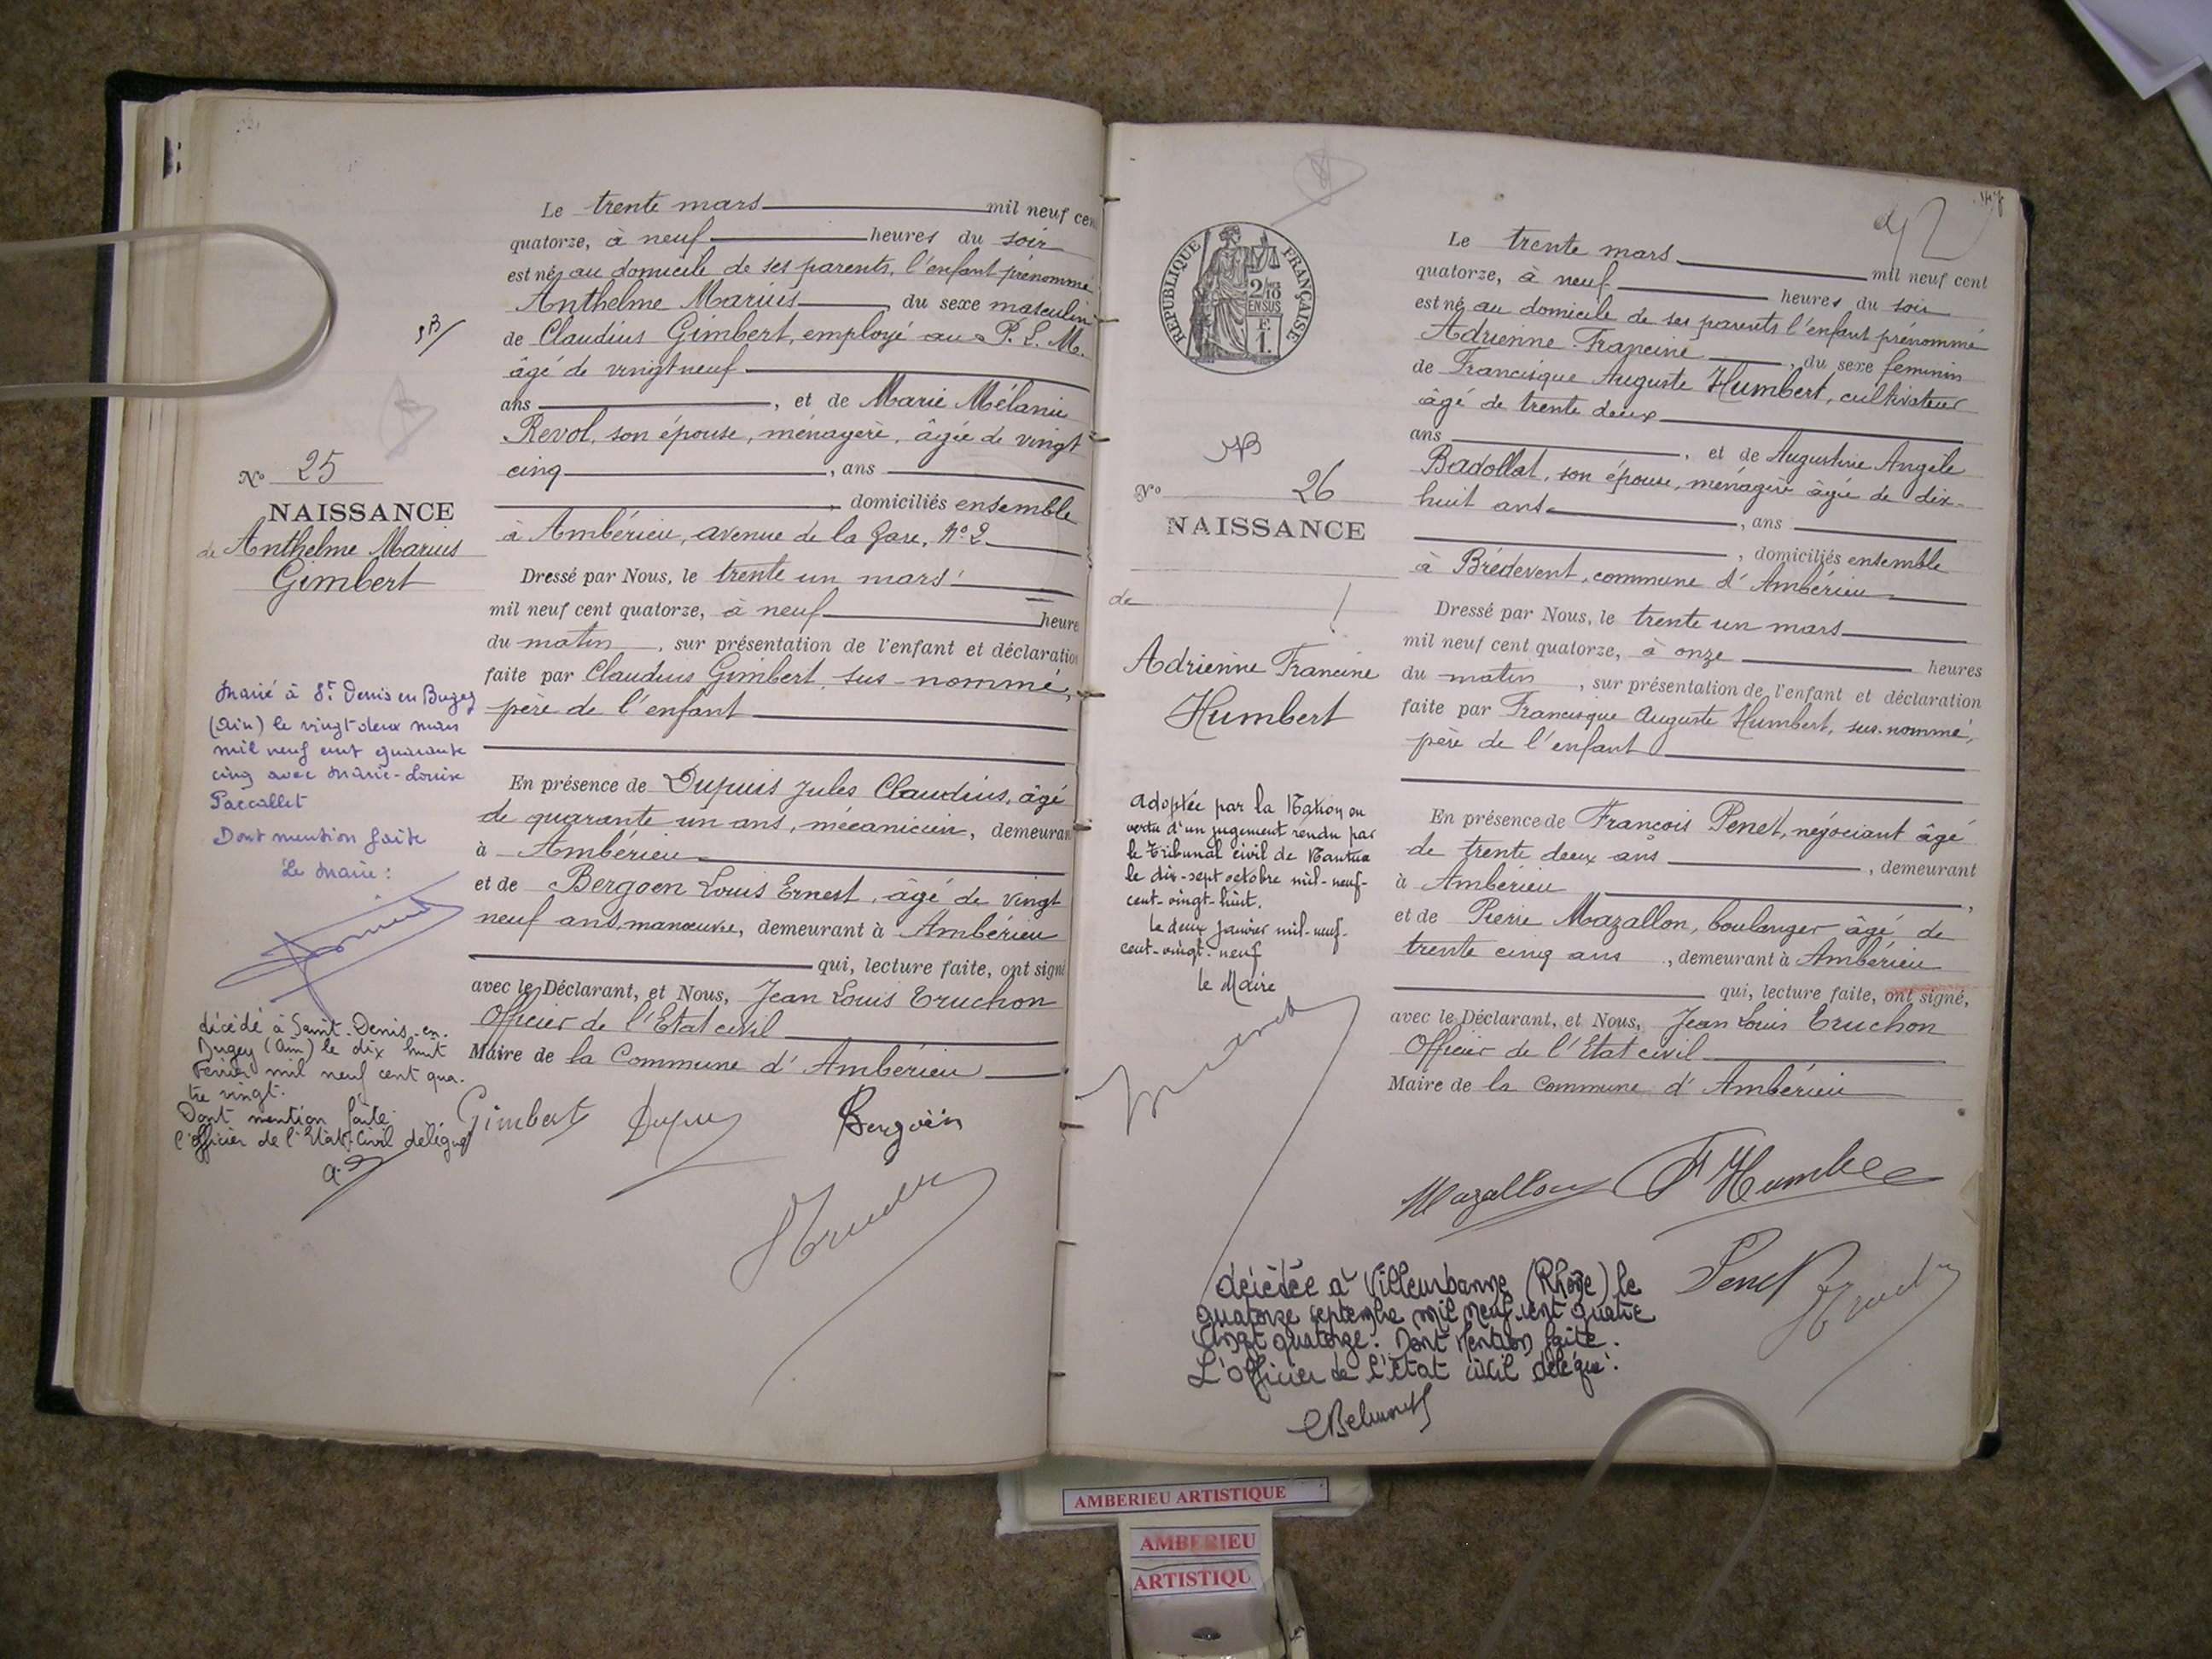 Le trente mars mil neuf cent
quatorze, à neuf heures du soir
est né, au domicile de ses parents, l'enfant prénommé
Anthelme Marius, du sexe masculin
de Claudius Gimbert, employé au P. L. M.
âgé de vingt neuf
ans, et de Marie Mélanie
Revol, son épouse, ménagère, âgée de vingt
cinq, ans
, domiciliés ensemble
à Ambérieu, avenue de la Gare, No 2
Dressé par Nous, le trente un mars
mil neuf cent quatorze, à neuf heure
du matin, sur présentation de l'enfant et déclaration
faite par Claudius Gimbert, sus-nommé,
père de l'enfant
En présence de Dupuis Jules Claudius, âgé
de quarante un ans, mécanicien, demeurant
à Ambérieu
et de Bergoen Louis Ernest, âgé de vingt
neuf ans, manœuvre, demeurant à Ambérieu
qui, lecture faite, ont signé
avec le Déclarant, et Nous, Jean Louis Truchon
Officier de l'Etat civil
Maire de la Commune d'Ambérieu
Gimbert Dupuis Bergoën
No 25
NAISSANCE
de Anthelme Marius
Gimbert
Marié à St Denis en Bugey
(Ain) le vingt deux mars
mil neuf cent quarante
cinq avec Marie-Louise
Paccallet
Dont mention faite
Le Maire:
décédé à Saint-Denis-en-
Bugey (Ain) le dix huit
Février mil neuf cent qua-
tre vingt.
Dont mention faite
l'Officier de l'Etat-Civil délégué
REPUBLIQUE FRANÇAISE
2/10
EN SUS
E.
1.
No 26
NAISSANCE
de
Adrienne Francine
Humbert
Adoptée par la Nation en
vertu d'un jugement rendu par
le Tribunal civil de Nantua
le dix-sept octobre mil-neuf-
cent-vingt-huit.
Le deux Janvier mil-neuf-
cent-vingt-neuf
le Maire
Le trente mars mil neuf cent
quatorze, à neuf heures du soir
est né, au domicile de ses parents l'enfant prénommé
Adrienne Francine, du sexe feminin
de Francisque Auguste Humbert, cultivateur
âgé de trente deux
ans, et de Augustine Angèle
Badollat, son épouse, ménagère âgée de dix-
huit ans, ans
, domiciliés ensemble
à Brédevent, commune d'Ambérieu
Dressé par Nous, le trente un mars
mil neuf cent quatorze, à onze heures
du matin, sur présentation de l'enfant et déclaration
faite par Francisque Auguste Humbert, sus-nommé,
père de l'enfant
En présence de François Penet, négociant âgé
de trente deux ans, demeurant
à Ambérieu,
et de Pierre Mazallon, boulanger âgé de
trente cinq ans, demeurant à Ambérieu
qui, lecture faite, ont signé,
avec le Déclarant, et Nous, Jean Louis Truchon
Officier de l'Etat civil
Maire de la Commune d'Ambérieu
Mazallon F Humbert
Penet
décédée à Villeurbanne (Rhône) le
quatorze septembre mil neuf cent quatre
vingt quatorze. Dont Mention faite.
L'officier de l'état civil délégué.
AMBERIEU ARTISTIQUE
AMBERIEU
ARTISTIQU